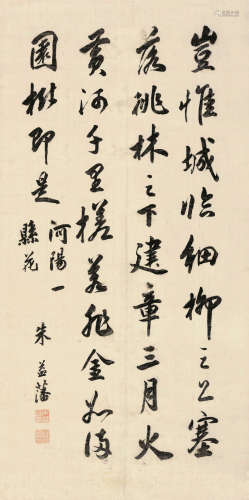 豈惟城臨細柳之上塞
落桃林之下建章三月火
黃河千里槎若非金谷滿
園樹即是河陽一
縣花
朱益藩